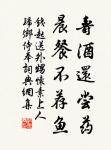 寿酒还尝药
晨餐不荐鱼
钱起送外甥怀素上人
归乡侍奉词典网集